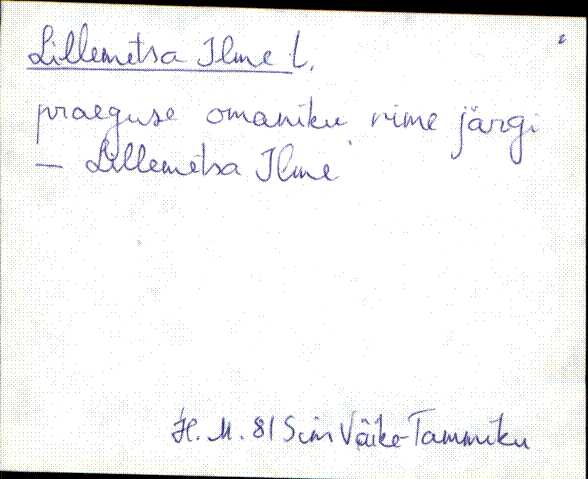 Lillemetsa Ilme t.
praeguse omaniku nime järgi
— Lillemetsa Ilme
H. M. 81 Sim Väike-Tammiku